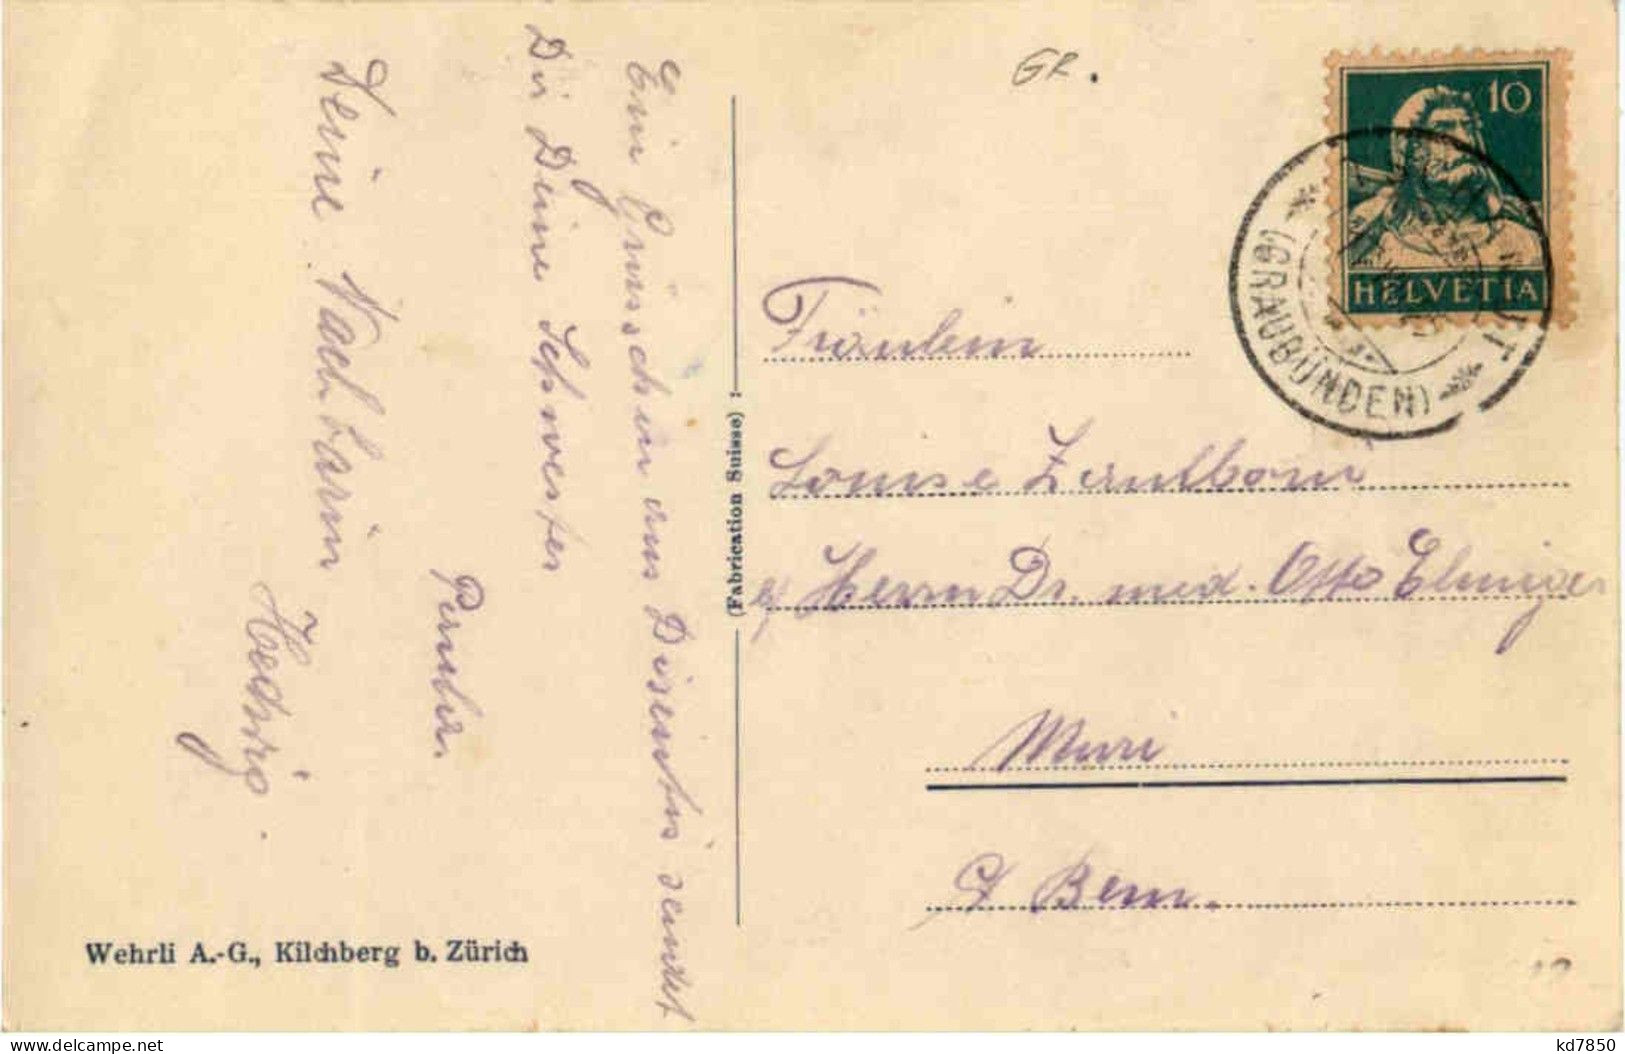 GR.
10
HELVETIA
(GRAUBÜNDEN)
Ein Grüsschen aus Disentis sendet
Dir Deine Schwester
Deine Nachbarin
Hedwig.
(Fabrication Suisse) :
Fräulein
Louise
c/ Herrn Dr. med. Otto Elmiger
Muri
Ct Bern.
Wehrli A.-G., Kilchberg b. Zürich
kd7850